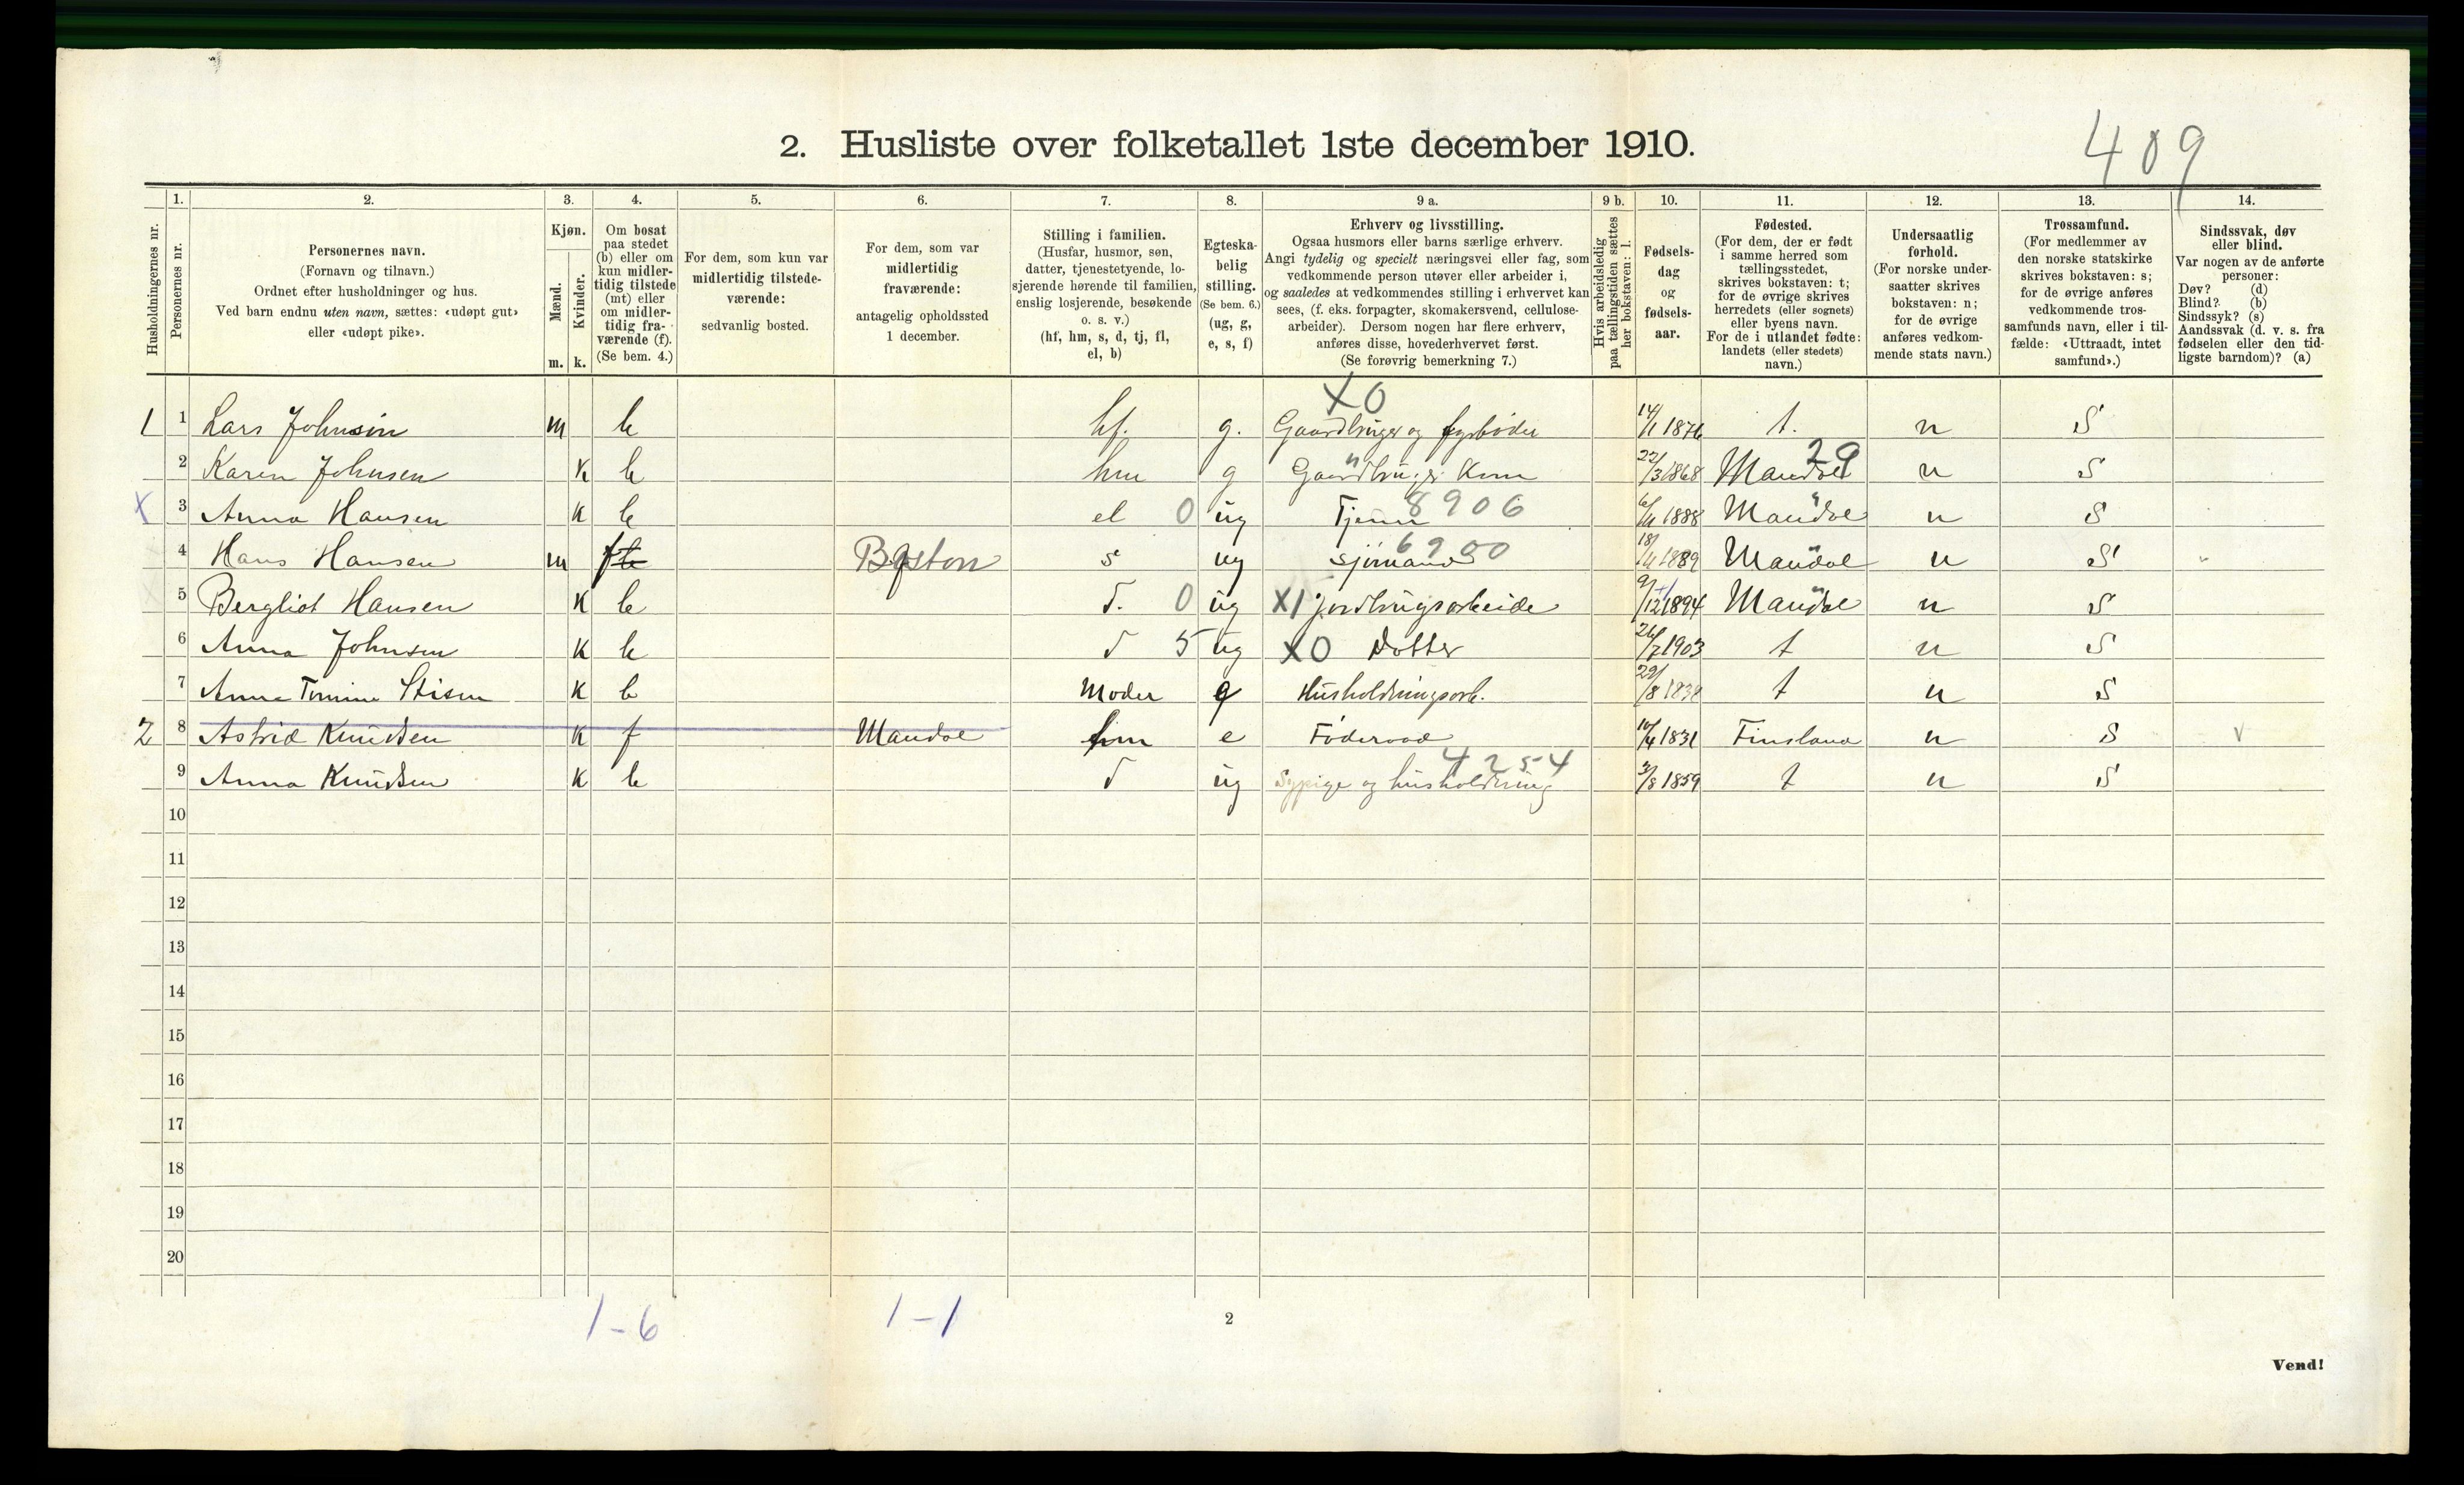 2. Husliste over folketallet 1ste december 1910.
409
Husholdningernes nr.
1.
Personernes nr.
2.
Personernes navn.
(Fornavn og tilnavn.)
Ordnet efter husholdninger og hus.
Ved barn endnu uten navn, sættes: «udøpt gut»
eller «udøpt pike».
3.
Kjøn.
Mænd.
Kvinder.
m. k.
4.
Om bosat
paa stedet
(b) eller om
kun midler-
tidig tilstede
(mt) eller
om midler-
tidig fra-
værende (f).
(Se bem. 4.)
5.
For dem, som kun var
midlertidig tilstede-
værende:
sedvanlig bosted.
6.
For dem, som var
midlertidig
fraværende:
antagelig opholdssted
1 december.
7.
Stilling i familien.
(Husfar, husmor, søn,
datter, tjenestetyende, lo-
sjerende hørende til familien,
enslig losjerende, besøkende
o. s. v.)
(hf, hm, s, d, tj, fl,
el, b)
8.
Egteska-
belig
stilling.
(Se bem. 6.)
(ug, g,
e, s, f)
9 a.
Erhverv og livsstilling.
Ogsaa husmors eller barns særlige erhverv.
Angi tydelig og specielt næringsvei eller fag, som
vedkommende person utøver eller arbeider i,
og saaledes at vedkommendes stilling i erhvervet kan
sees, (f. eks. forpagter, skomakersvend, cellulose-
arbeider). Dersom nogen har flere erhverv,
anføres disse, hovederhvervet først.
(Se forøvrig bemerkning 7.)
9 b.
Hvis arbeidsledig
paa tællingstiden sættes
her bokstaven: l.
10.
Fødsels-
dag
og
fødsels-
aar.
11.
Fødested.
(For dem, der er født
i samme herred som
tællingsstedet,
skrives bokstaven: t;
for de øvrige skrives
herredets (eller sognets)
eller byens navn.
For de i utlandet fødte:
landets (eller stedets)
navn.)
12.
Undersaatlig
forhold.
(For norske under-
saatter skrives
bokstaven: n;
for de øvrige
anføres vedkom-
mende stats navn.)
13.
Trossamfund.
(For medlemmer av
den norske statskirke
skrives bokstaven: s;
for de øvrige anføres
vedkommende tros-
samfunds navn, eller i til-
fælde: «Uttraadt, intet
samfund».)
14.
Sindssvak, døv
eller blind.
Var nogen av de anførte
personer:
Døv? (d)
Blind? (b)
Sindssyk? (s)
Aandssvak (d. v. s. fra
fødselen eller den tid-
ligste barndom)? (a)
X0
1 1 Lars Johnsen m b hf. g. Gaardbruger og fyrbøder 14/1 1876 t. n S
29
2 Karen Johnsen K b hm g Gaardbruger Kone 22/3 1868 Mandal n S
X 3 Anna Hansen K b el 0 ug Tjener 8906 6/11 1888 Mandal n S
4 Hans Hansen m f Boston s ug sjømand 6900 18/11 1889 Mandal n S
5 Bergliot Hansen K b d. 0 ug X1 jordbrugsarbeide 9/12 1894 Mandal n S
6 Anna Johnsen K b d 5 ug X0 Dotter 26/7 1903 t n S
7 Anna K b Moder Husholdningsarb. 29/8 t n S
2 8 Astrid Knudsen K f Mandal hm e Føderaad 10/4 1831 Finsland n S v
9 Anna Knudsen K b d ug Sypige og husholdning 4254 3/8 1859 t n S
10
11
12
13
14
15
16
17
18
19
20
1-6 1-1
2
Vend!